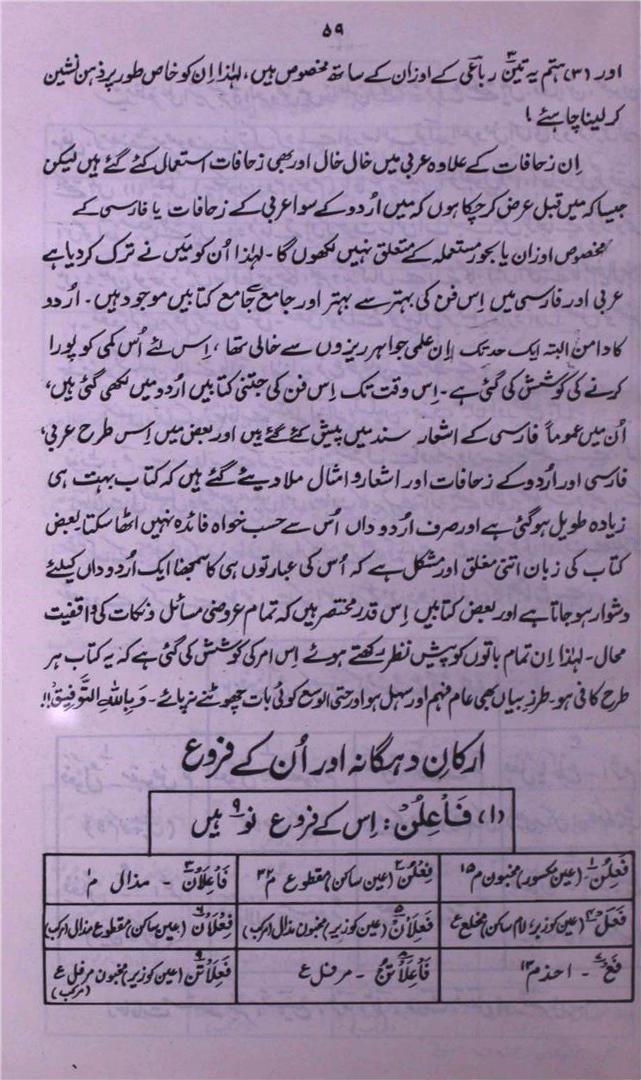 ۵۹
اور (۳) ہتم یہ تین۳ رباعی کے اوزان کے ساتھ مخصوص ہیں، لہٰذا اِن کو خاص طور پر ذہن نشین
کر لینا چاہئے۔
اِن زحافات کے علاوہ عربی میں خال خال اور بھی زحافات استعمال کئے گئے ہیں لیکن
جیسا کہ میں قبل عرض کر چکا ہوں کہ میں اُردو کے سوا عربی کے زحافات یا فارسی کے
مخصوص اوزان یا بحور مستعملہ کے متعلق نہیں لکھوں گا۔ لہٰذا اُن کو میں نے ترک کر دیا ہے
عربی اور فارسی میں اِس فن کی بہتر سے بہتر اور جامع سے جامع کتابیں موجود ہیں۔ اُردو
کا دامن البتہ ایک حد تک اِن علمی جواہر ریزوں سے خالی تھا، اِس لئے اُس کمی کو پورا
کرنے کی کوشش کی گئی ہے۔ اِس وقت تک اِس فن کی جتنی کتابیں اُردو میں لکھی گئی ہیں،
اُن میں عموماً فارسی کے اشعار سند میں پیش کئے گئے ہیں اور بعض میں اِس طرح عربی،
فارسی اور اُردو کے زحافات اور اشعار و امثال ملا دیئے گئے ہیں کہ کتاب بہت ہی
زیادہ طویل ہو گئی ہے اور صرف اُردو داں اُس سے حسب خواہ فائدہ نہیں اٹھا سکتا بعض
کتاب کی زبان اتنی مغلق اور مشکل ہے کہ اُس کی عبارتوں ہی کا سمجھنا ایک اُردو داں کیلئے
دشوار ہو جاتا ہے اور بعض کتابیں اِس قدر مختصر ہیں کہ تمام عروضی مسائل و نکات کی واقفیت
محال۔ لہٰذا اِن تمام باتوں کو پیش نظر رکھتے ہوئے اِس امر کی کوشش کی گئی ہے کہ یہ کتاب ہر
طرح کافی ہو۔ طرز بیاں بھی عام فہم اور سہل ہو اور حتی الوسع کوئی بات چھوٹنے نہ پائے۔ وَبِاللہِ التَّوفِیق!!
ارکانِ دہگانہ اور اُن کے فروع
(۱) فَاعِلُنْ: اِس کے فروع نو۹ ہیں
فَعِلُنْ۱۔ (عین مکسور) مخبون م ۱۵ فِعْلُنْ۲ (عین ساکن) مقطوع م ۳۲ فَاعِلَانْ۳ ۔ مذال م ۱
فَعَلْ۴ (عین کو زبر، لام ساکن) مخلع ع فَعِلَانْ۵ (عین کو زیر) مخبون مذال (مرکب) فِعْلَانْ۶ (عین ساکن) مقطوع مذال (مرکب)
فَعْ۷ ۔ احذ م ۱۳ فَاعِلَاتُنْ۸ ۔ مرفل ع فَعِلَاتُنْ۹ (عین کو زیر) مخبون مرفل ع (مرکب)